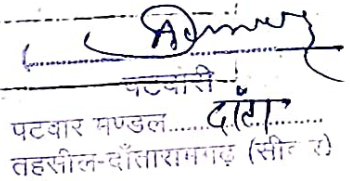 पटवारी
पटवार मण्डल........दांता........
तहसील-दाँतारामगढ़ (सीकर)